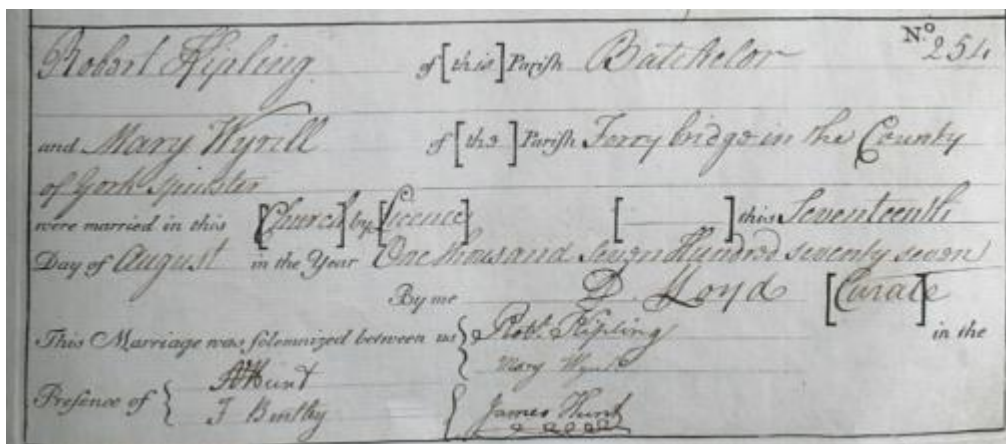 Robert Kipling of [this] Parish Batchelor No. 254
and Mary Wyrill of [the] Parish Ferry bridge in the County
of York Spinster
were married in this [Church] by [Licence] [ ] this Seventeenth
Day of August in the Year One thousand Seven Hundred seventy seven
By me D. Lloyd [Curate]
This Marriage was solemnized between us } Robt. Kipling in the
Mary
Presence of { Hunt
J Bentley { James Hunt